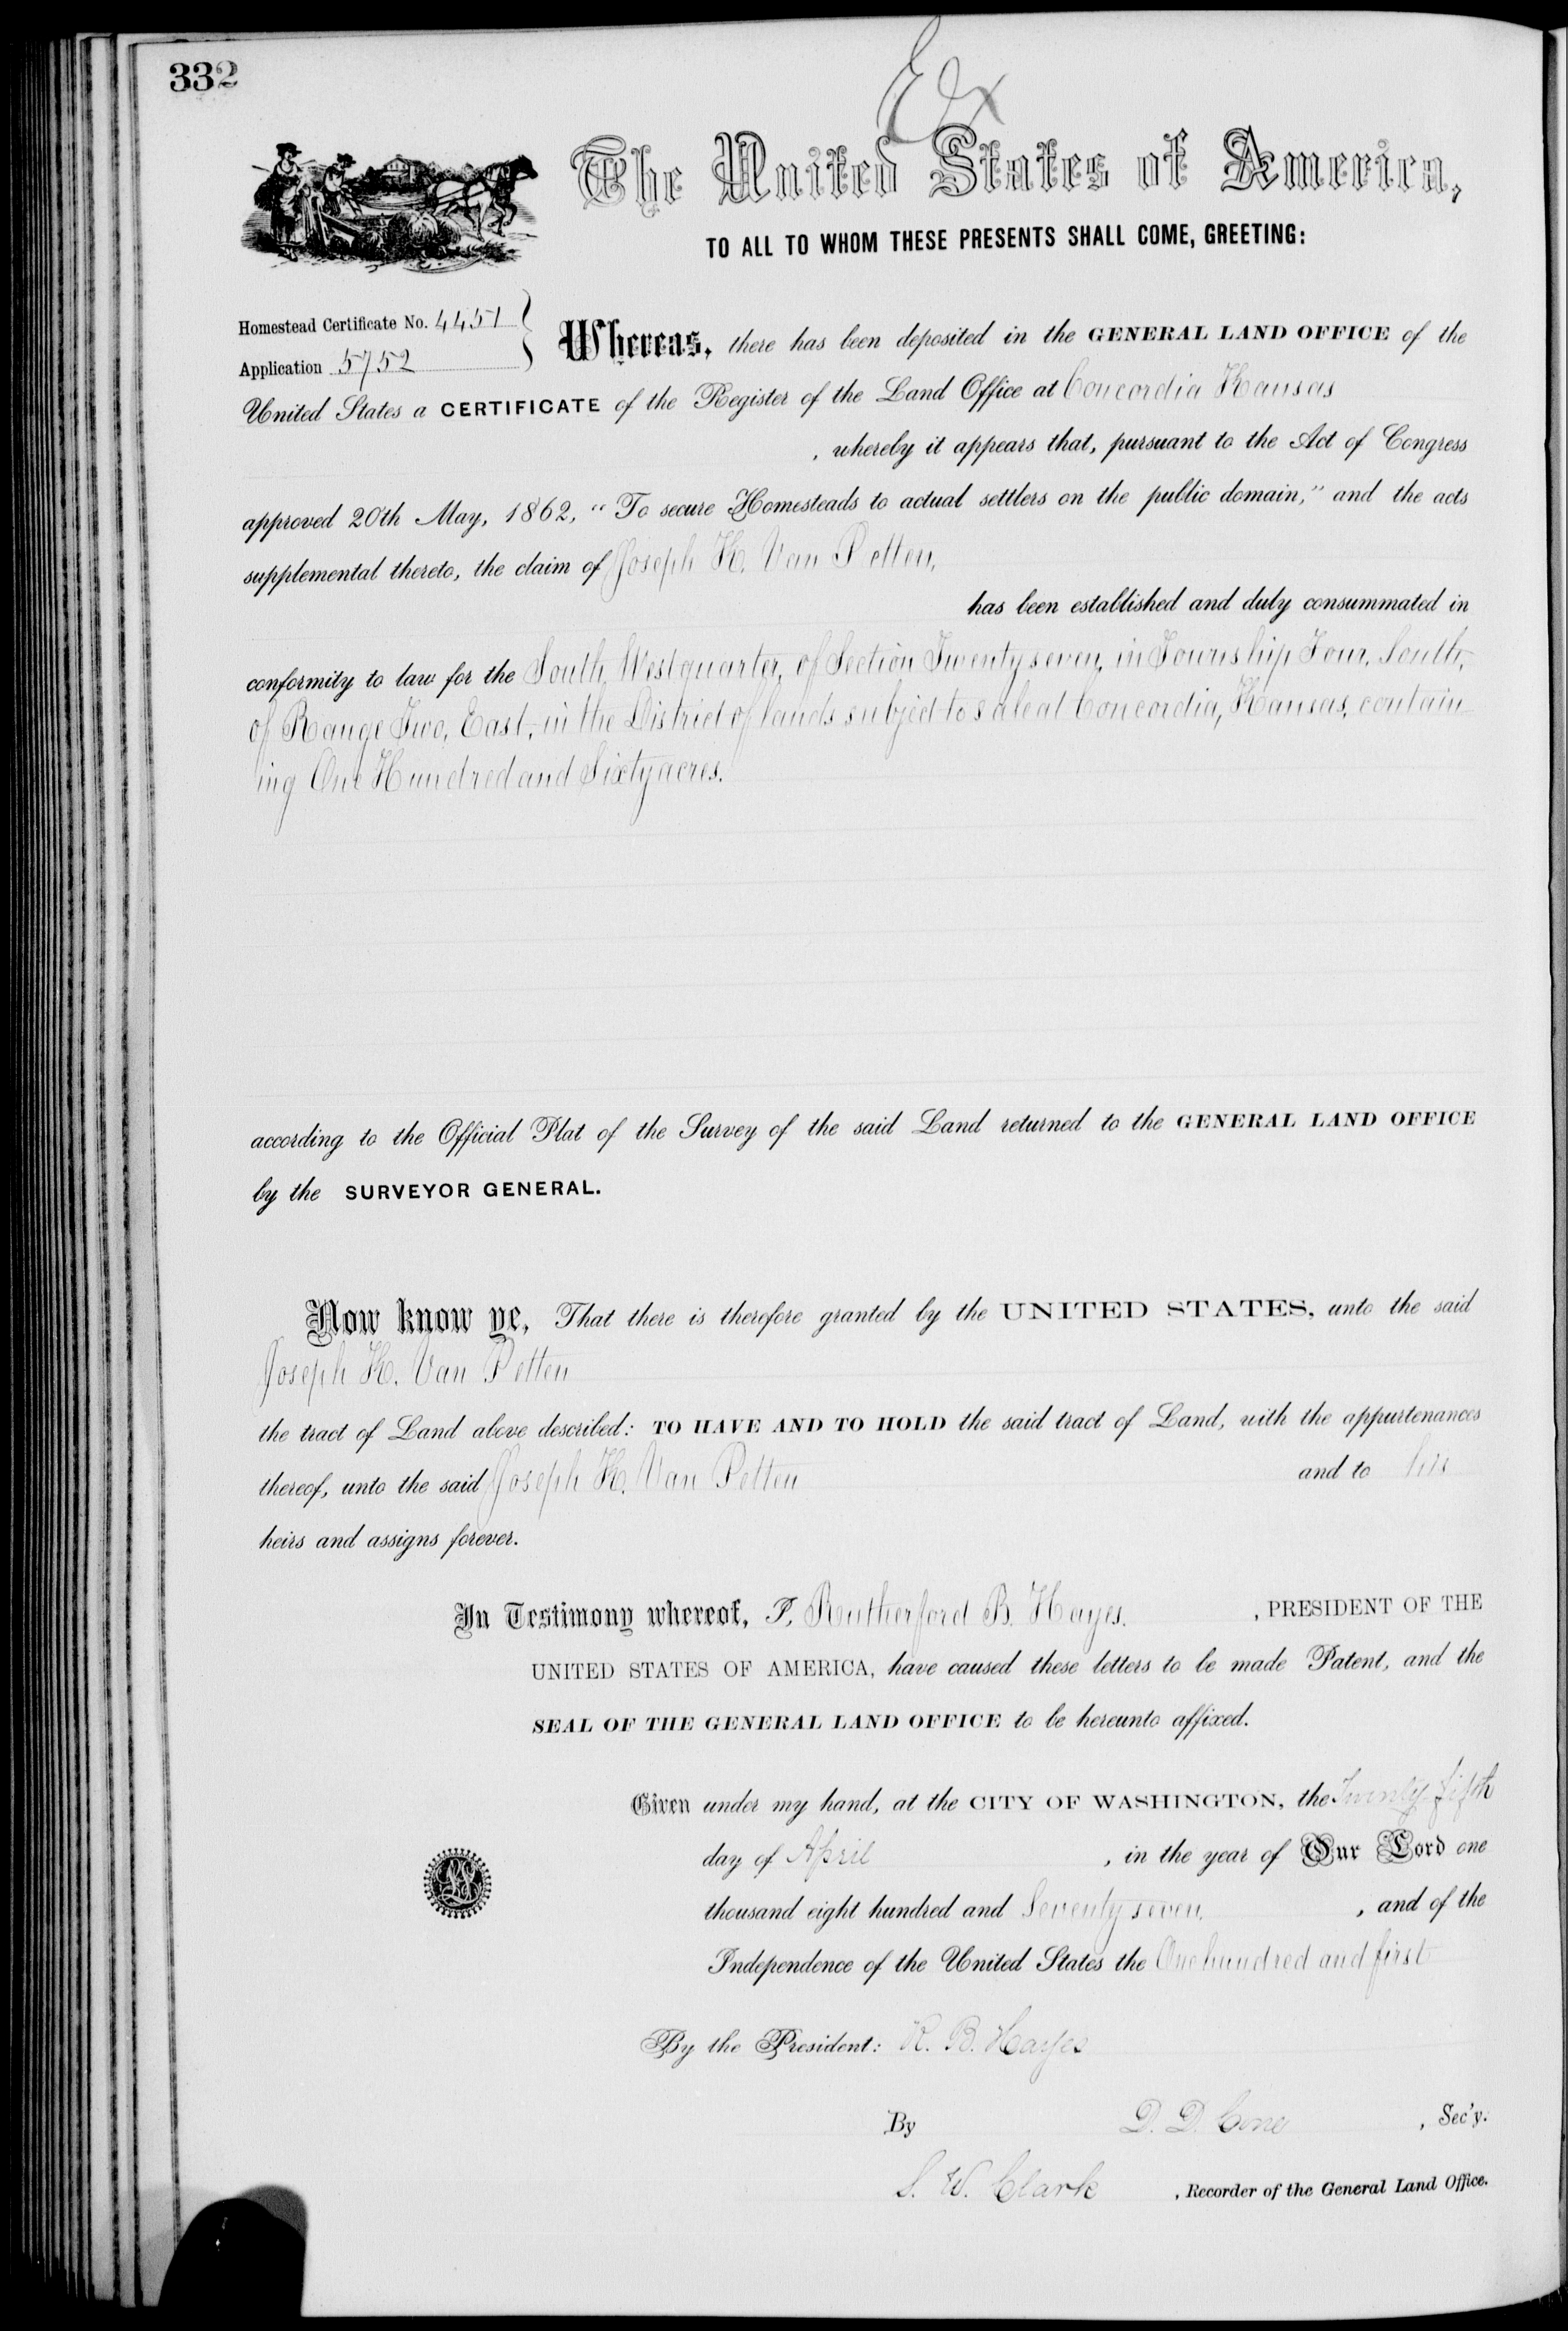 332
Ex
The United States of America,
TO ALL TO WHOM THESE PRESENTS SHALL COME, GREETING:
Homestead Certificate No. 4451
Application 5752
Whereas, there has been deposited in the GENERAL LAND OFFICE of the
United States a CERTIFICATE of the Register of the Land Office at Concordia Kansas
, whereby it appears that, pursuant to the Act of Congress
approved 20th May, 1862, "To secure Homesteads to actual settlers on the public domain," and the acts
supplemental thereto, the claim of Joseph H. Van Petten,
has been established and duly consummated in
conformity to law for the South West quarter, of Section Twenty seven, in Township Four, South,
of Range Two, East, in the District of lands subject to sale at Concordia, Kansas, contain
ing One Hundred and Sixty acres.
according to the Official Plat of the Survey of the said Land returned to the GENERAL LAND OFFICE
by the SURVEYOR GENERAL.
Now know ye, That there is therefore granted by the UNITED STATES, unto the said
Joseph H. Van Petten
the tract of Land above described: TO HAVE AND TO HOLD the said tract of Land, with the appurtenances
thereof, unto the said Joseph H. Van Petten and to his
heirs and assigns forever.
In Testimony whereof, I, Rutherford B. Hayes. , PRESIDENT OF THE
UNITED STATES OF AMERICA, have caused these letters to be made Patent, and the
SEAL OF THE GENERAL LAND OFFICE to be hereunto affixed.
Given under my hand, at the CITY OF WASHINGTON, the Twenty fifth
day of April , in the year of Our Lord one
thousand eight hundred and Seventy seven, , and of the
Independence of the United States the One hundred and first
By the President: R. B. Hayes
By D. D. Cone , Sec'y.
S. W. Clark , Recorder of the General Land Office.